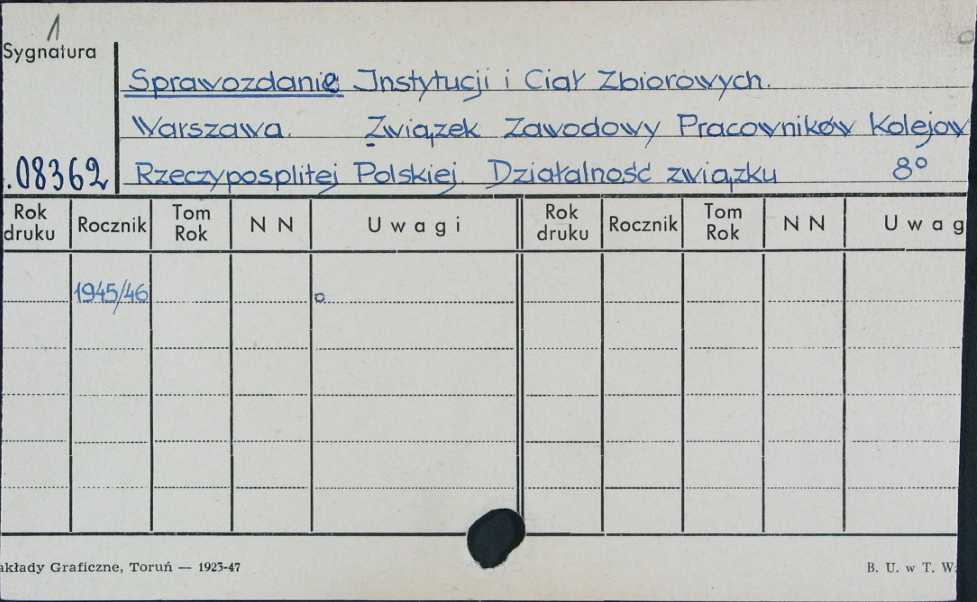 1
Sygnatura
Sprawozdanie Instytucji i Ciał Zbiorowych.
Warszawa. Związek Zawodowy Pracowników Kolejow
.08362 Rzeczyposplitej Polskiej. Działalność związku 8°
Rok druku Rocznik Tom Rok N N Uwagi Rok druku Rocznik Tom Rok N N Uwag
1945/46 o
akłady Graficzne, Toruń — 1923-47 B. U. w T. W